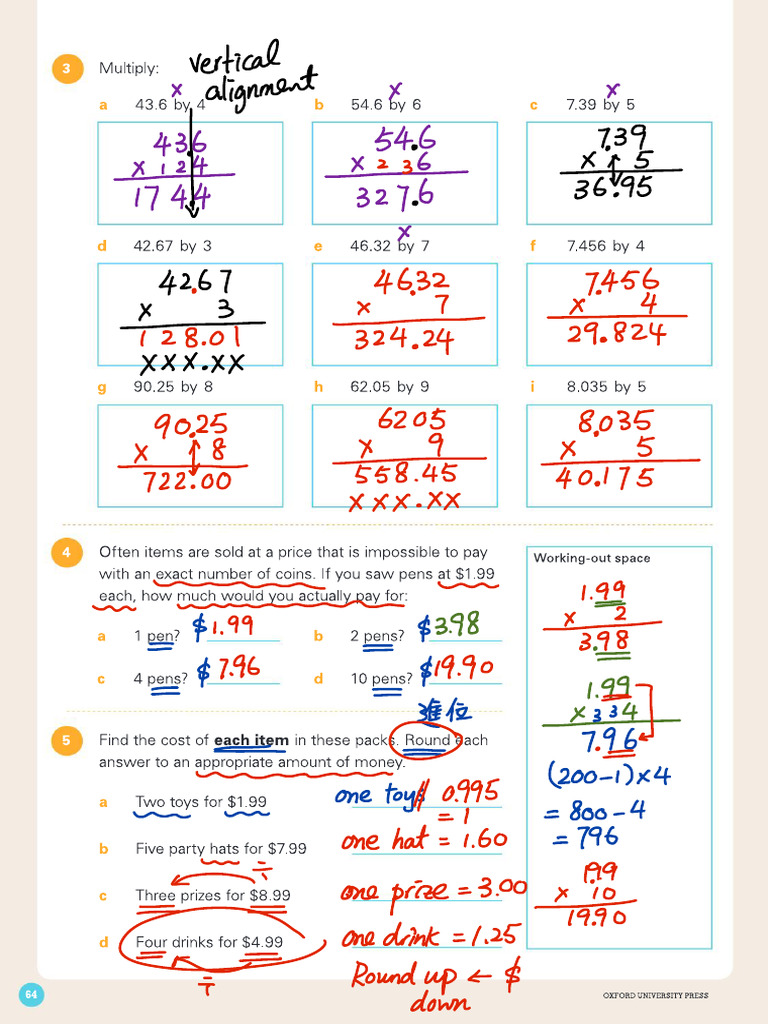 3 Multiply:
vertical
alignment
x x x
a 43.6 by 4 b 54.6 by 6 c 7.39 by 5
43.6 54.6 7.39
x 1 2 4 x 2 3 6 x 5
174.4 327.6 36.95
x
d 42.67 by 3 e 46.32 by 7 f 7.456 by 4
42.67 46.32 7.456
x 3 x 7 x 4
128.01 324.24 29.824
xxx.xx
g 90.25 by 8 h 62.05 by 9 i 8.035 by 5
90.25 6205 8.035
x 8 x 9 x 5
722.00 558.45 40.175
xxx.xx
4 Often items are sold at a price that is impossible to pay
with an exact number of coins. If you saw pens at $1.99
each, how much would you actually pay for:
a 1 pen? $1.99 b 2 pens? $3.98
c 4 pens? $7.96 d 10 pens? $19.90
進位
5 Find the cost of each item in these packs. Round each
answer to an appropriate amount of money.
a Two toys for $1.99 one toy 0.995
= 1
b Five party hats for $7.99 one hat = 1.60
÷
c Three prizes for $8.99 one prize = 3.00
d Four drinks for $4.99 one drink = 1.25
÷
Round up ← $
down
Working-out space
1.99
x 2
3.98
1.99
x 3 3 4
7.96
(200-1)x4
= 800-4
= 796
1.99
x 10
19.90
64 OXFORD UNIVERSITY PRESS